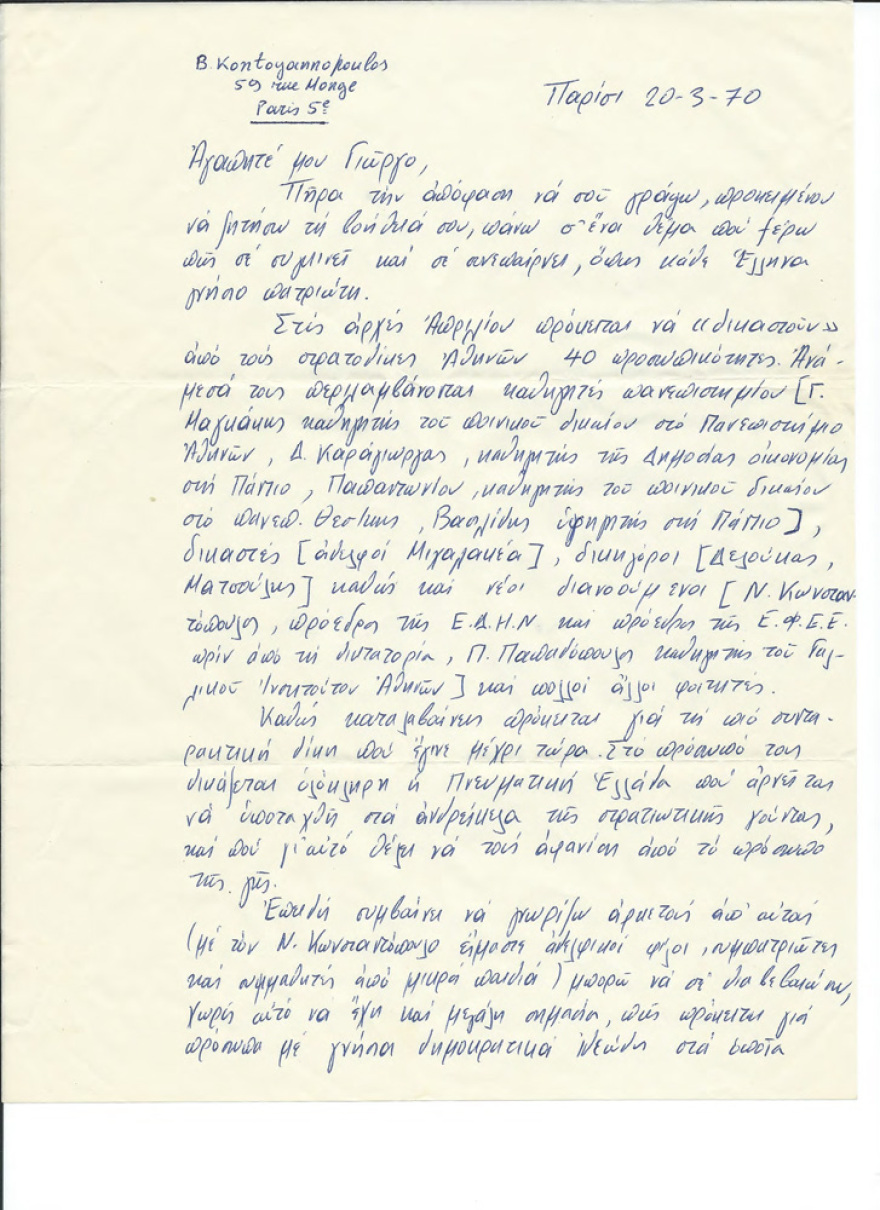 B. Kontoyannopoulos
59 rue Monge
Paris 5e
Παρίσι 20-3-70
Ἀγαπητέ μου Γιῶργο,
Πῆρα τήν ἀπόφαση νά σοῦ γράψω, προκειμένου
νά ζητήσω τή βοήθειά σου, πάνω σ' ἕνα θέμα πού ξέρω
πώς σέ συγκινεῖ καί σέ συνεπαίρνει, ὅπως κάθε Ἕλληνα
γνήσιο πατριώτη.
Στίς ἀρχές Ἀπριλίου πρόκειται νά «δικαστοῦν»
ἀπό τούς στρατοδίκες Ἀθηνῶν 40 προσωπικότητες. Ἀνά-
μεσά τους περιλαμβάνονται καθηγητές πανεπιστημίου [Γ.
Μαγκάκης καθηγητής τοῦ ποινικοῦ δικαίου στό Πανεπιστήμιο
Ἀθηνῶν, Δ. Καράγιωργας, καθηγητής τῆς Δημοσίας οἰκονομίας
στή Πάντειο, Παπαντωνίου, καθηγητής τοῦ ποινικοῦ δικαίου
στό πανεπ. Θεσ/κης, Βασιλίδης ὑφηγητής στή Πάντειο],
δικαστές [ἀδελφοί Μιχαλακέα], δικηγόροι [Δελούκας,
Ματσούλης] καθώς καί νέοι διανοούμενοι [Ν. Κωνσταν-
τόπουλος, πρόεδρος τῆς Ε.Δ.Η.Ν καί πρόεδρος τῆς Ε.Φ.Ε.Ε.
πρίν ἀπό τή δικτατορία, Π. Παπαδόπουλος καθηγητής τοῦ Γαλ-
λικοῦ Ἰνστιτούτου Ἀθηνῶν] καί πολλοί ἄλλοι φοιτητές.
Καθώς καταλαβαίνεις πρόκειται γιά τή πιό συντα-
ρακτική δίκη πού ἔγινε μέχρι τώρα. Στό πρόσωπό τους
δικάζεται ὁλόκληρη ἡ Πνευματική Ἑλλάδα πού ἀρνεῖται
νά ὑποταχθῆ στά ἀνδρείκελα τῆς στρατιωτικῆς χούντας,
καί πού γι' αὐτό θέλει νά τούς ἀφανίση ἀπό τό πρόσωπο
τῆς γῆς.
Ἐπειδή συμβαίνει νά γνωρίζω ἀρκετούς ἀπ' αὐτούς
(μέ τόν Ν. Κωνσταντόπουλο εἴμαστε ἀδελφικοί φίλοι, συμπατριῶτες
καί συμμαθητές ἀπό μικρά παιδιά) μπορῶ νά σέ διαβεβαιώσω,
χωρίς αὐτό να ἔχη καί μεγάλη σημασία, πώς πρόκειται γιά
πρόσωπα μέ γνήσια δημοκρατικά ἰδεώδη στά ὁποῖα